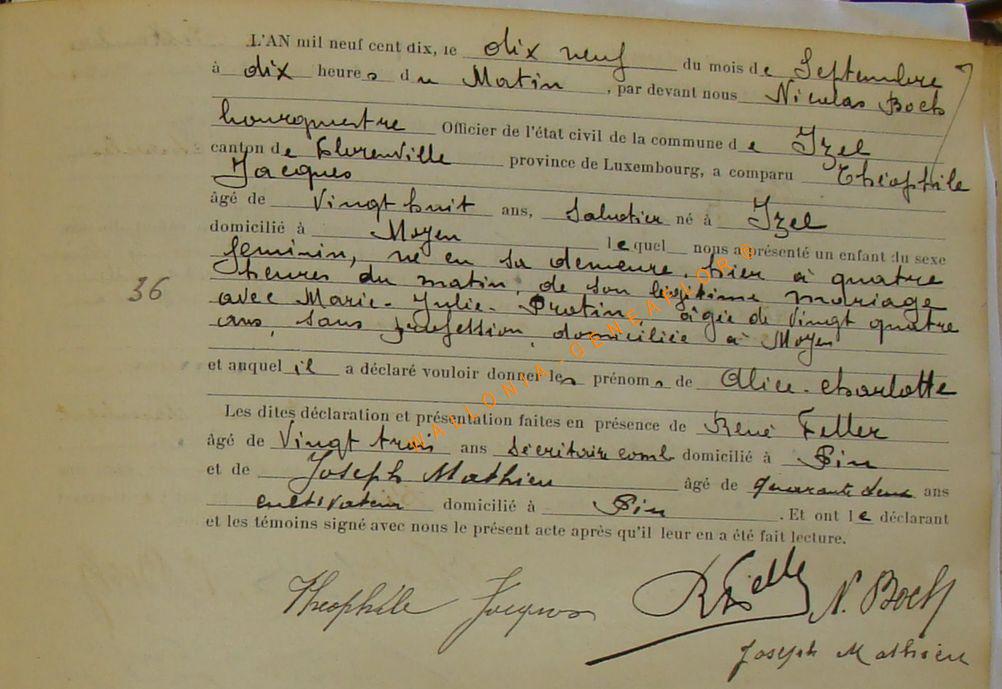 L'AN mil neuf cent dix, le dix neuf du mois de Septembre
à dix heures du Matin, par devant nous Nicolas Boeh
bourgmestre Officier de l'état civil de la commune de Izel
canton de Florenville province de Luxembourg, a comparu Théophile
Jacques
âgé de Vingt huit ans, Sabotier né à Izel
domicilié à Moyen lequel nous a présenté un enfant du sexe
féminin, né en sa demeure, hier à quatre
heures du matin, de son légitime mariage
36
avec Marie-Julie-Protin, âgée de Vingt quatre
ans, sans profession, domiciliée à Moyen
et auquel il a déclaré vouloir donner les prénoms de Alice-Charlotte
Les dites déclaration et présentation faites en présence de René Feller
âgé de Vingt trois ans Secrétaire comb domicilié à Pin
et de Joseph Mathieu âgé de quarante deux ans
cultivateur domicilié à Pin. Et ont le déclarant
et les témoins signé avec nous le présent acte après qu'il leur en a été fait lecture.
Théophile Jacques R Feller N. Boeh
Joseph Mathieu
WALLONIA-GENEAFLOR©